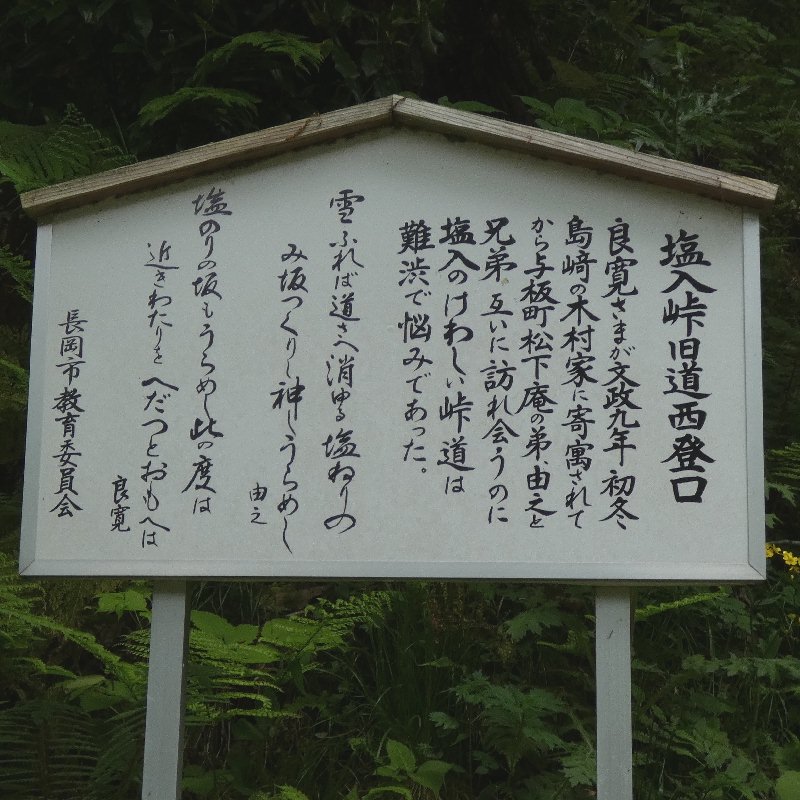 塩入峠旧道西登口
良寛さまが文政九年初冬
島﨑の木村家に寄寓されて
から与板町松下庵の弟、由之と
兄弟、互いに訪れ会うのに
塩入のけわしい峠道は
難渋で悩みであった。
雪ふれば道さへ消ゆる塩ねりの
み坂つくりし神しうらめし
由之
塩のりの坂もうらめし此の度は
近きわたりをへだつとおもへは
良寛
長岡市教育委員会